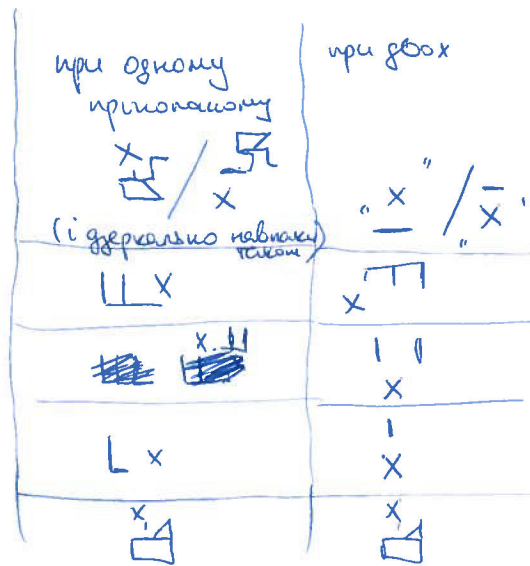 при одному
прікопаному
при двох
X
X
" X " / " X "
(і дзеркально навпаки
також)
X
X
X.
X
X
X
X,
X,